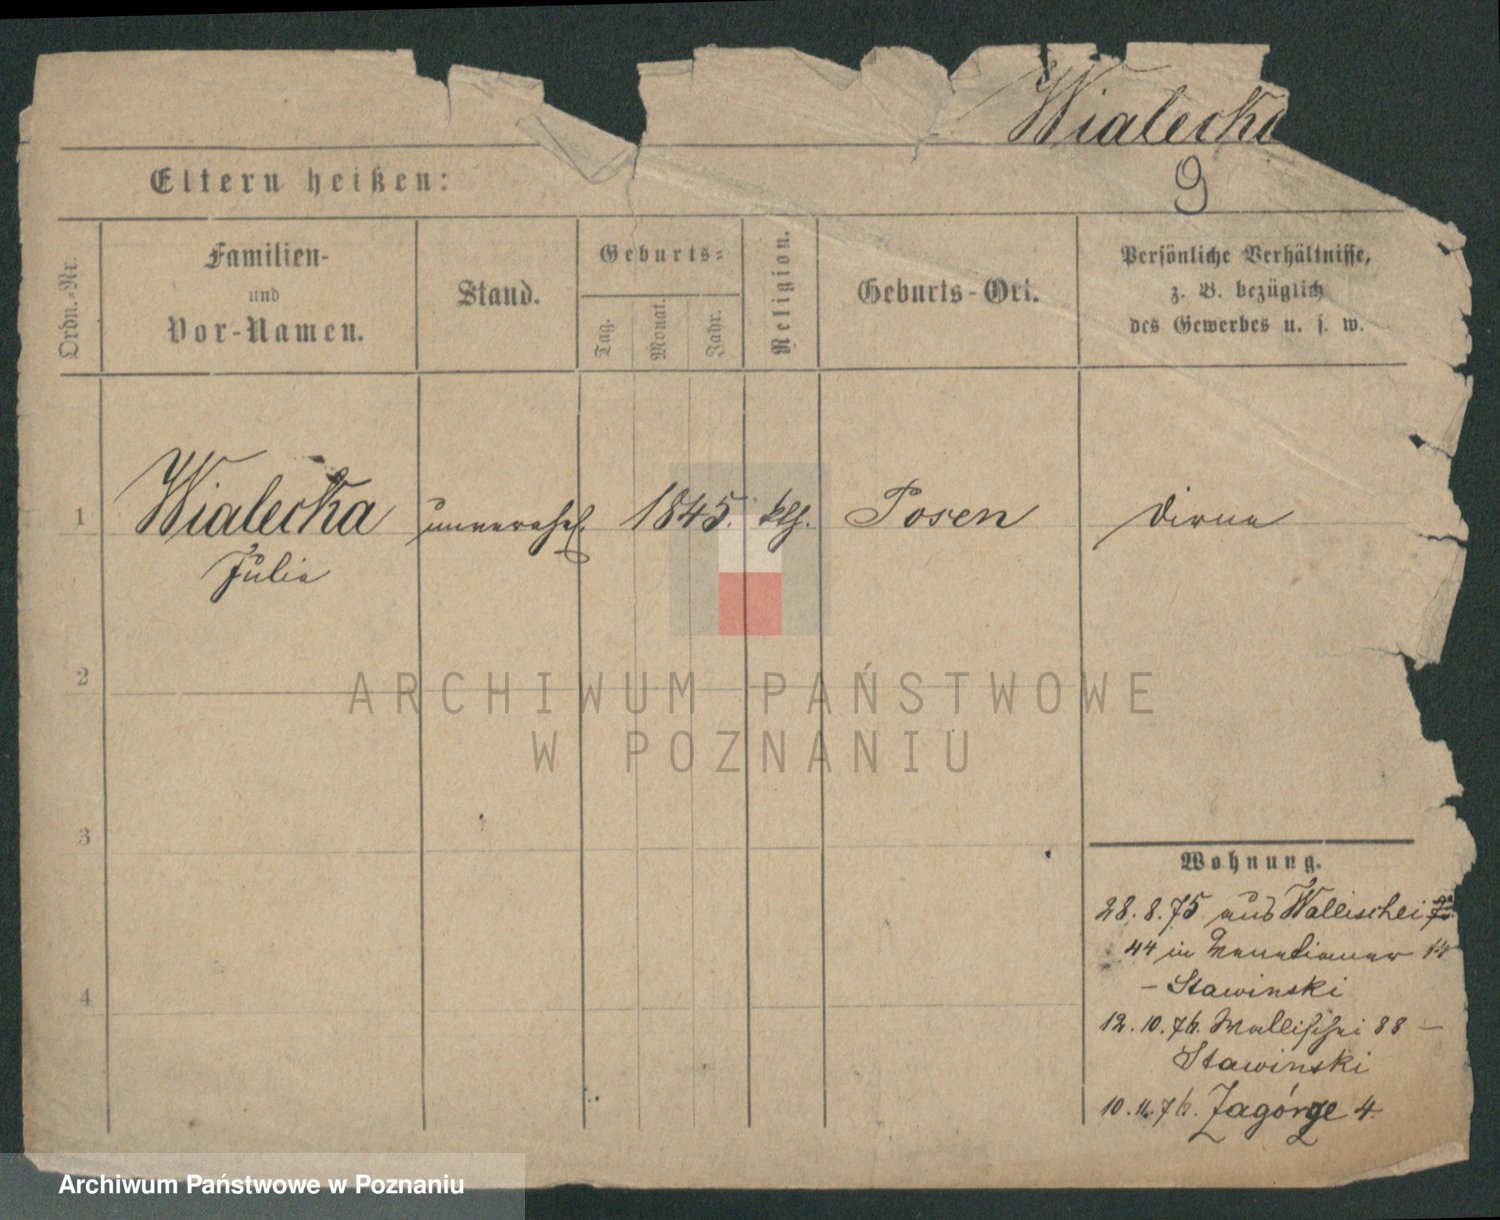 Wialecka
9
Eltern heißen:
Ordn.-Nr.
Familien-
und
Vor-Namen.
Stand.
Geburts-
Tag.
Monat.
Jahr.
Religion.
Geburts-Ort.
Persönliche Verhältnisse,
z. B. bezüglich
des Gewerbes u. s. w.
1 Wialecka unverehel. 1845. kth. Posen Dirne
Julie
2
ARCHIWUM PAŃSTWOWE
W POZNANIU
3
4
Wohnung.
28. 8. 75 aus Wallischei
44 in Venetianer 14
– Stawinski
12. 10. 76. Wallischei 88 –
Stawinski
10. 11. 76. Zagórze 4.
Archiwum Państwowe w Poznaniu